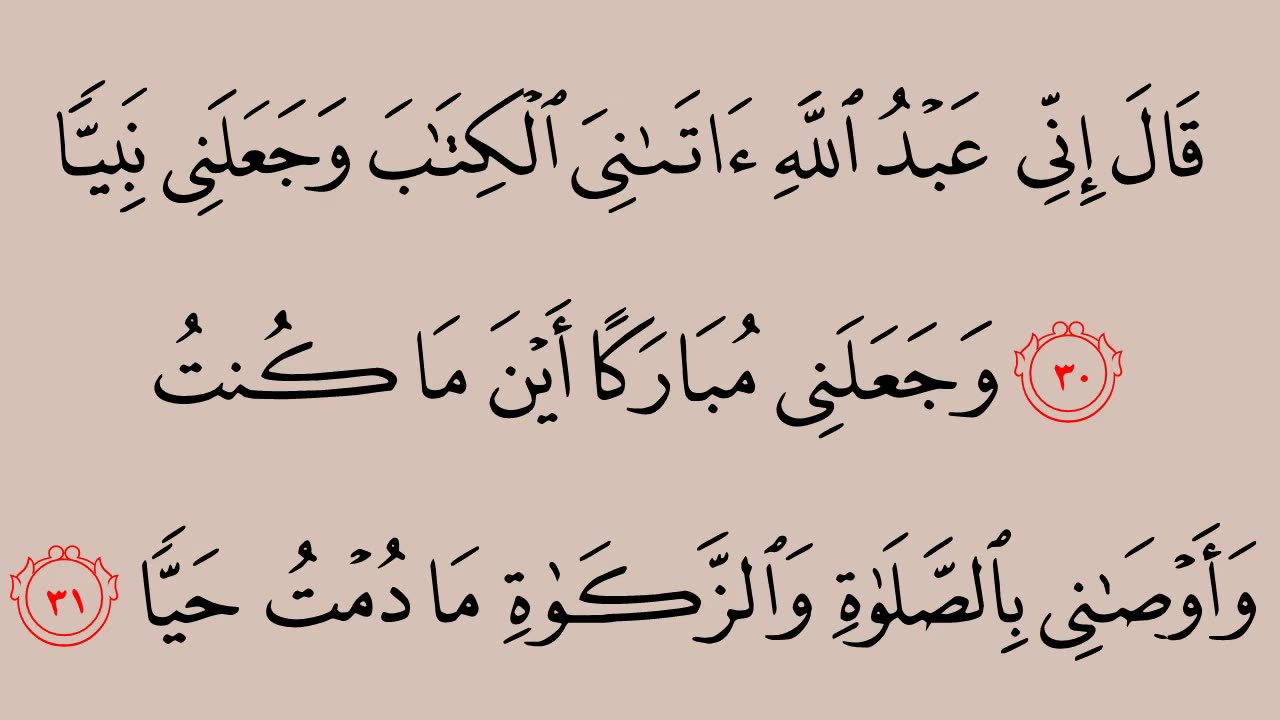 قَالَ إِنِّي عَبۡدُ ٱللَّهِ ءَاتَىٰنِيَ ٱلۡكِتَٰبَ وَجَعَلَنِي نَبِيّٗا
٣٠ وَجَعَلَنِي مُبَارَكًا أَيۡنَ مَا كُنتُ
وَأَوۡصَٰنِي بِٱلصَّلَوٰةِ وَٱلزَّكَوٰةِ مَا دُمۡتُ حَيّٗا ٣١